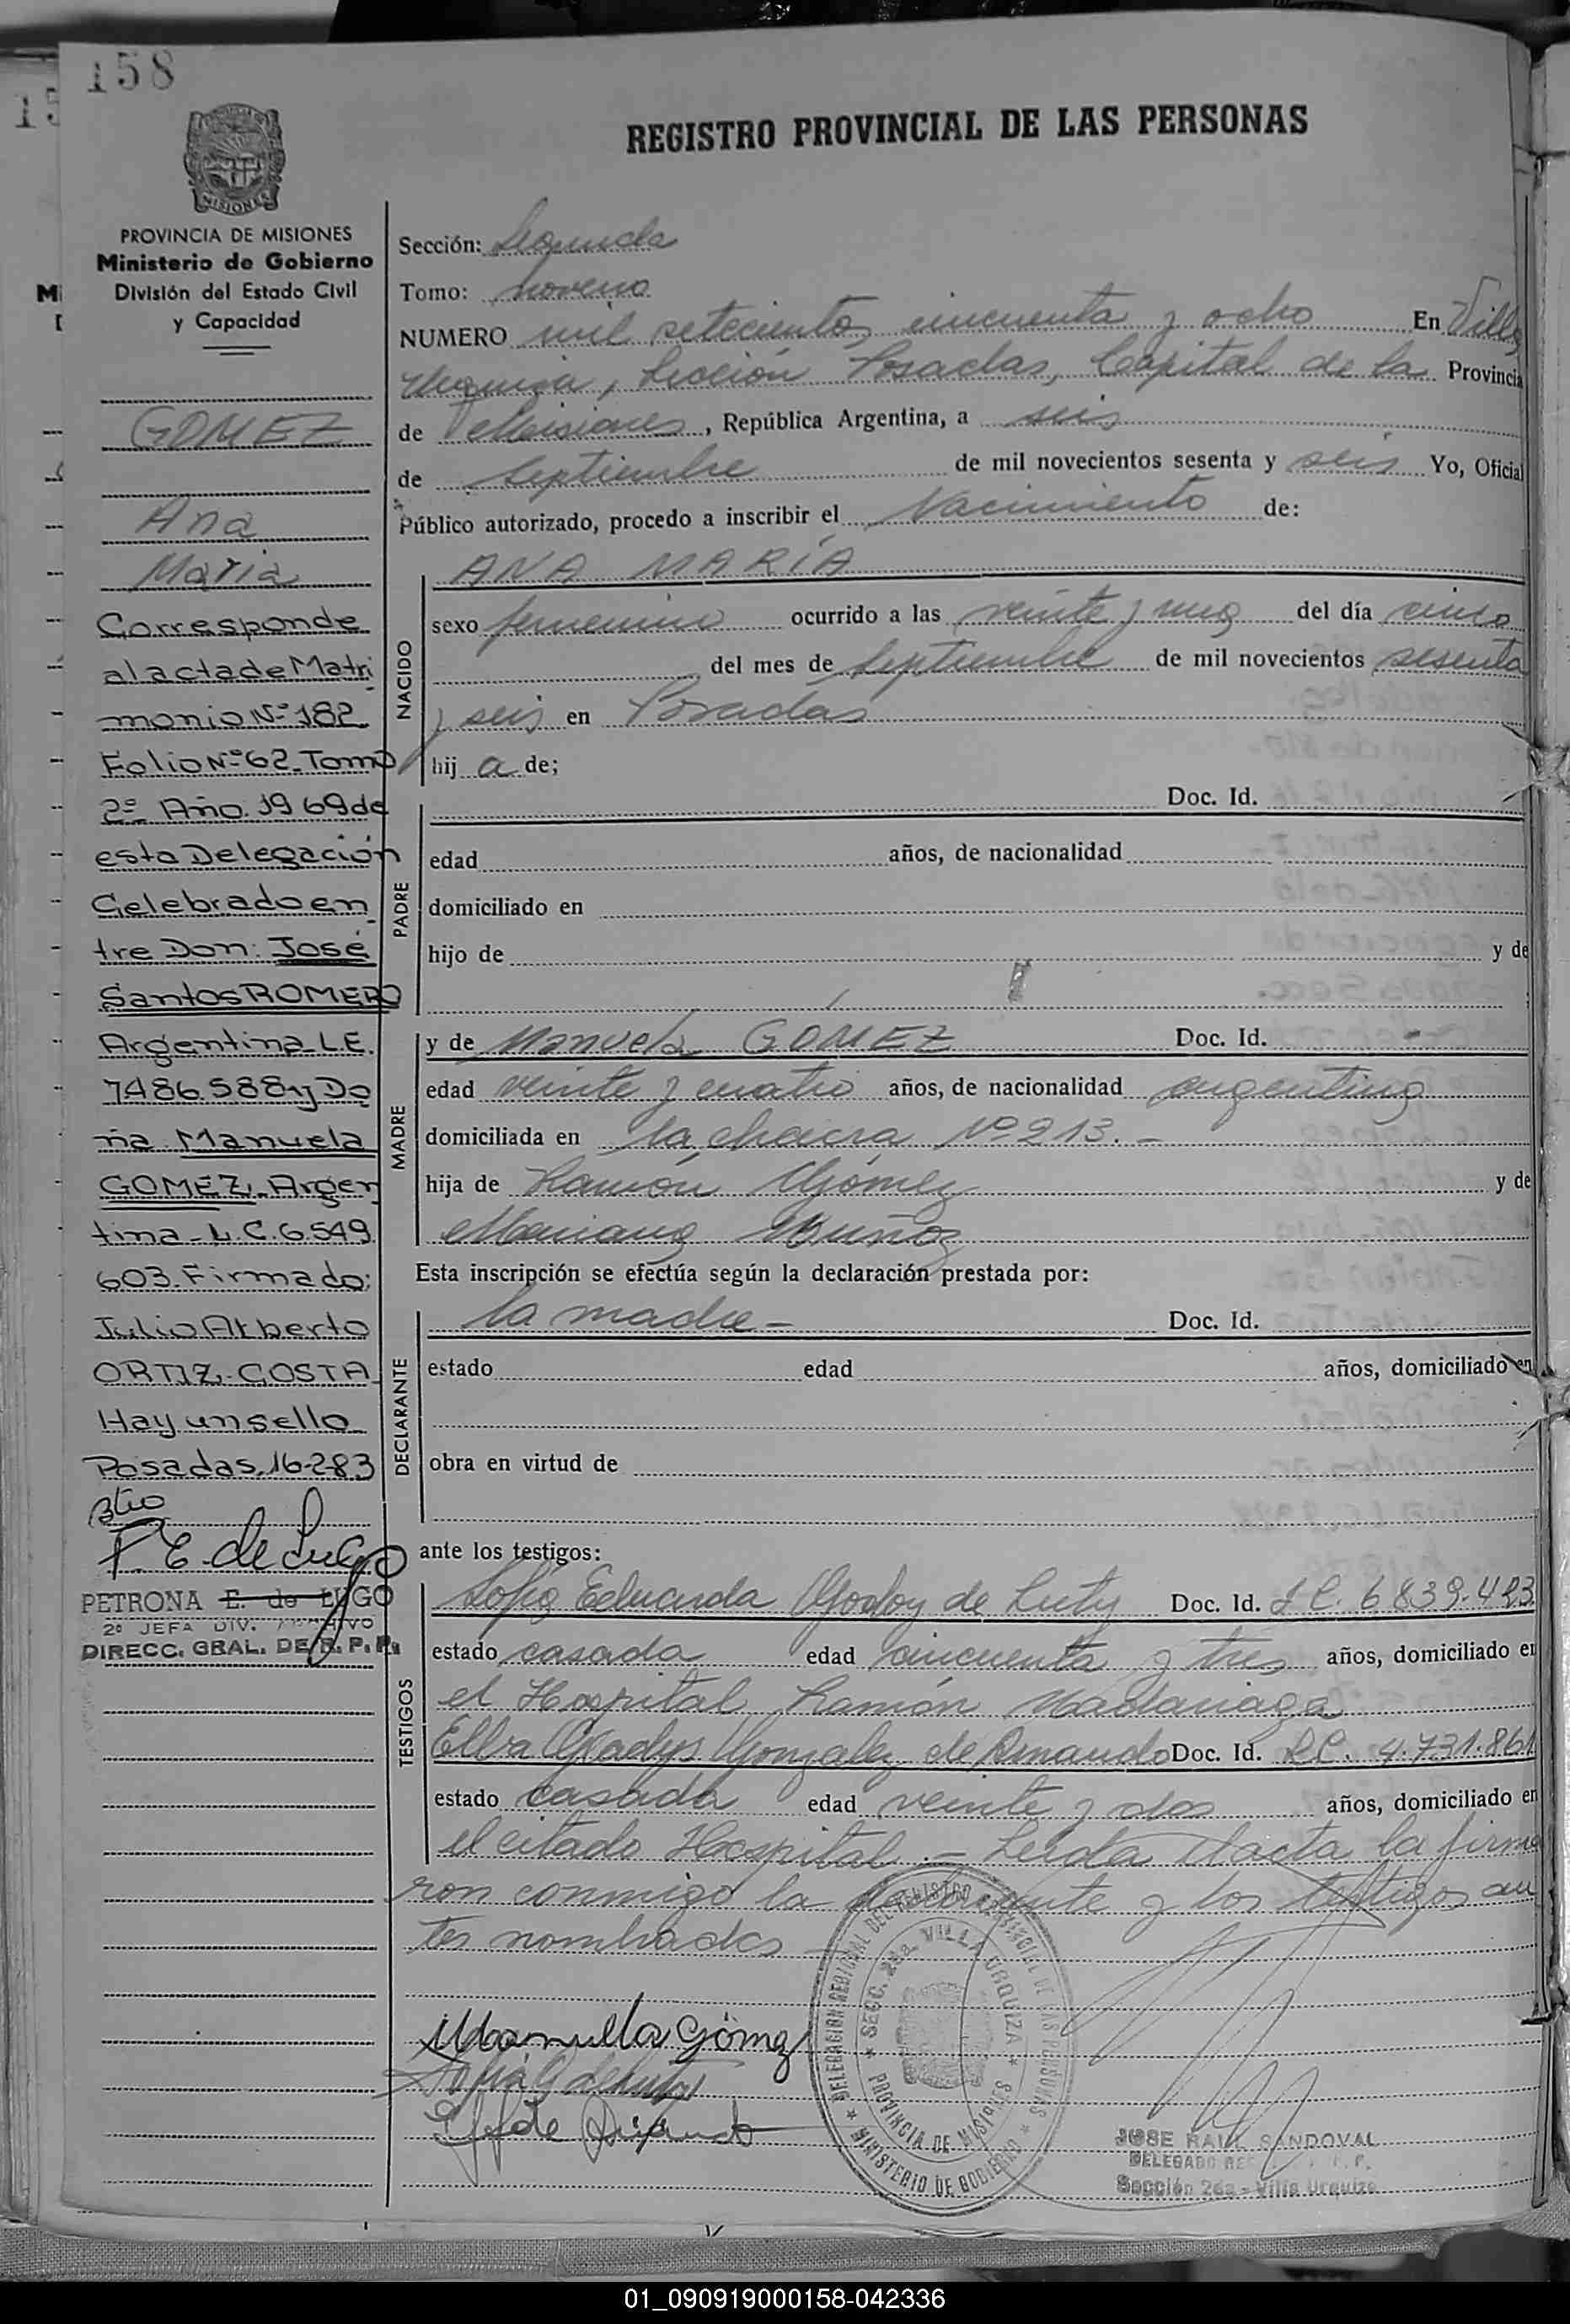 158
REGISTRO PROVINCIAL DE LAS PERSONAS
MISIONES
PROVINCIA DE MISIONES
Ministerio de Gobierno
División del Estado Civil
y Capacidad
GOMEZ
Ana
Maria
Corresponde
al acta de Matri
monio Nº 182
Folio Nº 62 Tomo
2º Año 1969 de
esta Delegación
Celebrado en
tre Don: José
Santos ROMERO
Argentina L.E.
7486.588 y Do
ña Manuela
GOMEZ. Argen
tina - L.C. 6.549
603. Firmado:
Julio Alberto
ORTIZ COSTA
Hay un sello
Posadas, 16-2-83
P. E. de Lugo
PETRONA E. de LUGO
2º JEFA DIV. ARCHIVO
DIRECC. GRAL. DE R. P. P.
Sección: Segunda
Tomo: noveno
NUMERO mil setecientos cincuenta y ocho En Villa
Urquiza, Sección Posadas, Capital de la Provincia
de Misiones, República Argentina, a seis
de Septiembre de mil novecientos sesenta y seis Yo, Oficial
Público autorizado, procedo a inscribir el Nacimiento de:
NACIDO
ANA MARÍA
sexo femenino ocurrido a las veinte y una del día cinco
del mes de Septiembre de mil novecientos sesenta
y seis en Posadas
hij a de;
PADRE
Doc. Id.
edad años, de nacionalidad
domiciliado en
hijo de y de
MADRE
y de Manuela GÓMEZ Doc. Id. -
edad veinte y cuatro años, de nacionalidad argentina
domiciliada en la chacra Nº 213. -
hija de Ramón Gómez y de
Mariana Muñoz
Esta inscripción se efectúa según la declaración prestada por:
DECLARANTE
la madre - Doc. Id.
estado edad años, domiciliado en
obra en virtud de
ante los testigos:
TESTIGOS
Sofía Eduarda Godoy de Luty Doc. Id. L.C. 6839.423
estado casada edad cincuenta y tres años, domiciliado en
el Hospital Ramón Madariaga
Elba Gladys Gonzalez de Amando Doc. Id. L.C. 4.731.861
estado casada edad veinte y dos años, domiciliado en
el citado Hospital. - Leída el acta la firma
ron conmigo la declarante y los testigos an
tes nombrados -
Manuela Gómez
DELEGACION REGIONAL DEL REGISTRO PROVINCIAL DE LAS PERSONAS * MINISTERIO DE GOBIERNO *
SECC. 2da. VILLA URQUIZA * PROVINCIA DE MISIONES *
JOSE RAUL SANDOVAL
DELEGADO
Sección 2da - Villa Urquiza
01_090919000158-042336